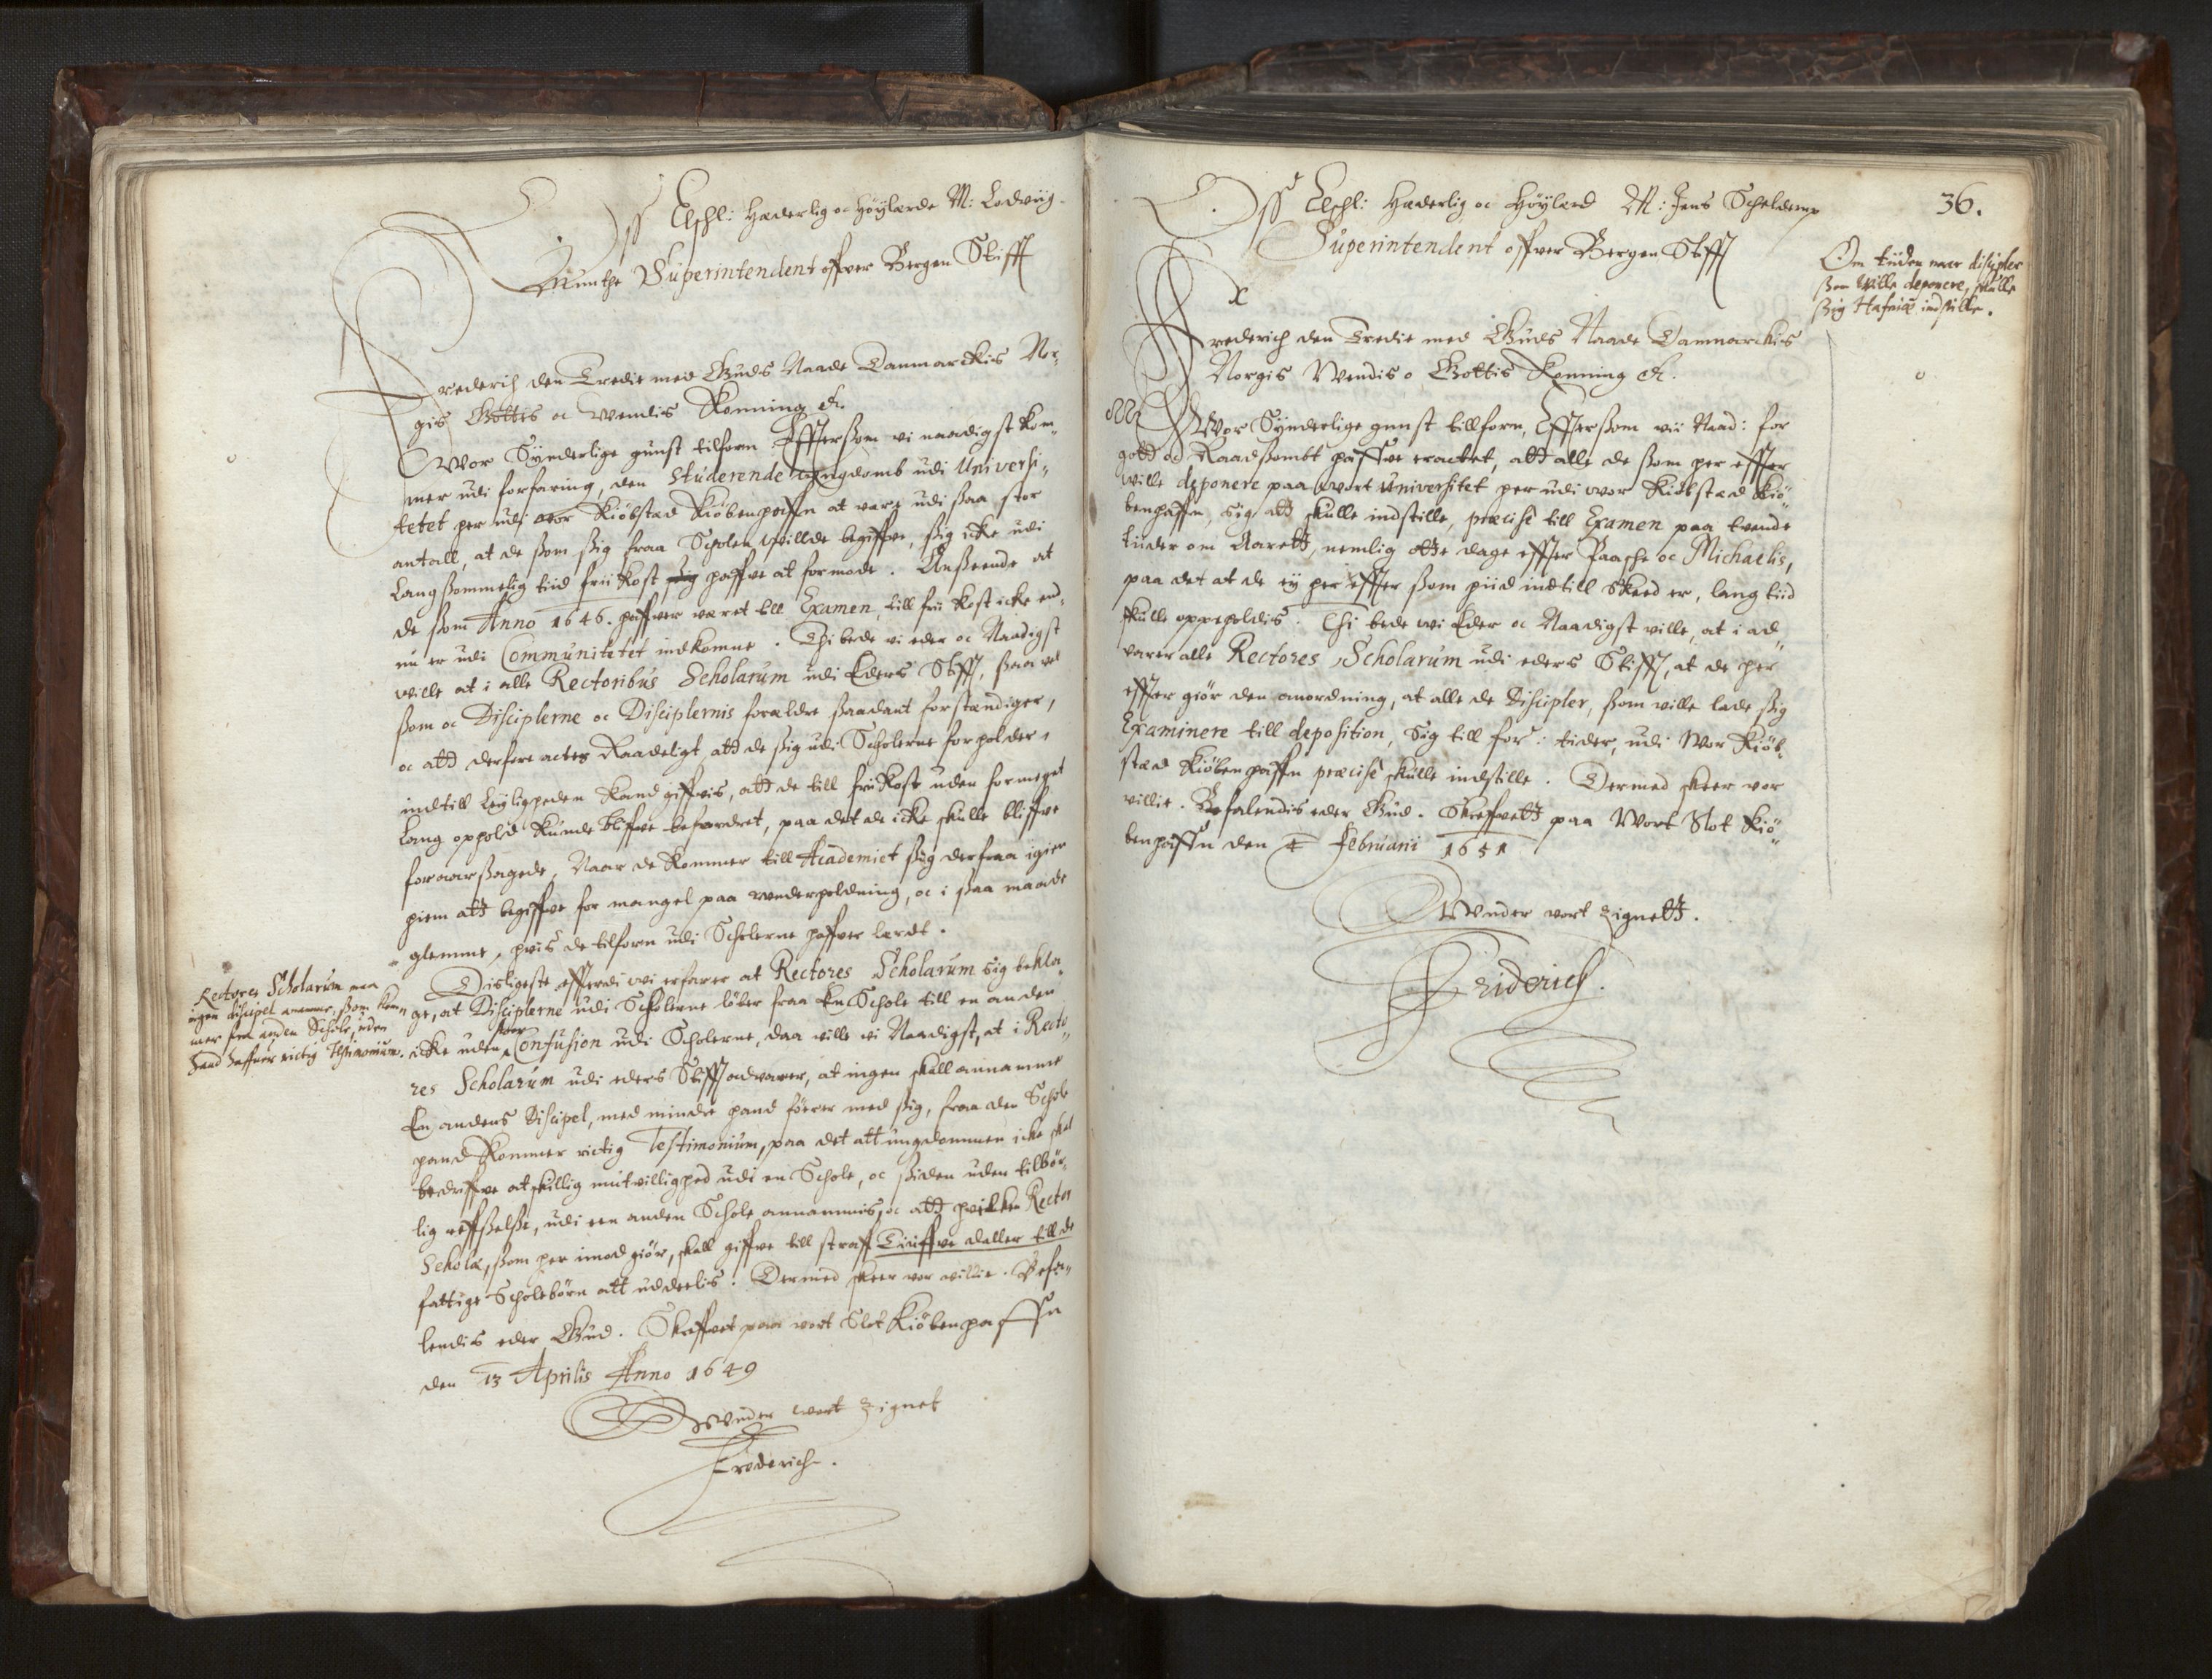 Oss Elschl: Hæderlig oc Høylærde M: Lodviig
Munthe Superintendent offver Bergen Stifft
Frederich den Tredie med Guds Naade Danmarckis Nor-
gis Gottis oc Wendis Konning &c.
Wor Synderlige gunst tilforn. Effterßom vi naadigst kom-
mer udi forfaring, den Studerende ungdomb udi Universi-
tetet her udi vor Kiøbsted Kiøbenhaffn at være udi ßaa stor
antall, at de ßom ßig fraa Scholen willde begiffve, ßig icke udi
Langßommelig tiid frii Kost haffve at formode. Anßeende at
de ßom Anno 1646. haffver været till Examen, till frii Kost icke end-
nu er udi Communitetet indkomne. Thi bede vi eder oc Naadigst
wille at i alle Rectoribus Scholarum udi Eders Stifft, ßaa vel
ßom oc Disciplerne oc Disciplernis forældre ßaadant forstændiger,
oc att derfore actes Raadeligt att de ßig udi Scholerne forholder,
indtill Leyligheden Kand giffvis, att de till frii Kost uden formeget
Lang ophold Kunde bliffve befordret, paa det de icke skulle bliffve
foraarßagede, Naar de Kommer till Academiet ßig derfraa igien
hiem att begiffve for mangel paa underholdning, oc i ßaa maade
glemme, hvis de tilforn udi Scholerne haffver lærdt.
Disligeste efferdi wi erfarer at Rectores Scholarum sig bekla-
ge, at Disciplerne udi Scholerne løber fraa En Schole till en anden
icke uden stoer Confusion udi Scholerne, daa ville vi Naadigst, at i Recto-
res Scholarum udi eders Stifft advarer, at ingen skall annamme
En andens Discipel, med mindre hand förer med ßig, fraa den Schole
hand Kommer rictig Testimonium, paa det att ungdommen icke skal
bedriffve atskillig mutvillighed udi en Schole, oc ßiden uden tilbør-
lig reffßelße, udi een anden Schole annammis, oc att hvilken Rector
Scholæ, ßom her imod giør, skall giffve till straff Tiuffve daller till de
fattige Scholebörn att uddeelis. Dermed skeer vor villie. Befa-
lendis eder Gud. Skreffvet paa vort Slot Kiøbenhaffn
den 13 Aprilis Anno 1649
Under wort Zignet
Frederich.
Rectores Scholarum maa
ingen discipel annamme, ßom kom-
mer fra anden Schole, uden
hand haffver rictig Testimonium.
36.
Oss Elschl: Hæderlig oc Høylærd M: Jens Schelderup
Superintendent offver Bergen Stifft
Om tiiden naar discipler
ßom wille deponere, skulle
ßig Hafniæ indstille.
Frederich den Tredie med Guds Naade Danmarckis
Norgis Wendis oc Gottis Konning &c.
Wor Synderlige gunst tillforn, Effterßom vii Naad: for
gott oc Raadßombt haffve eractet, att alle de ßom her effter
wille deponere paa wort Universitet her udi wor Kiøbsted Kiø-
benhaffn, sig att skulle indstille, præcisè till Examen paa tvende
tiider om Aarett, nemlig otte dage effter Paasche oc Michaelis,
paa det at de ey her effter ßom hiid indtill Skeed er, lang tiid
skulle oppeholdis. Thi bede wi Eder oc Naadigst ville, at i ad-
varer alle Rectores Scholarum udi eders Stifft, at de her
effter giør den anordning, at alle de Discipler, ßom wille lade ßig
Examinere till deposition, Sig till for: tider, udi Wor Kiøb-
sted Kiøbenhaffn præcisè skulle indstille. Dermed skeer vor
villie. Befalendis eder Gud. Skreffvett paa Wort Slot Kiø-
benhaffn den Februarii 1651
Under vort Zignett.
Friderich.